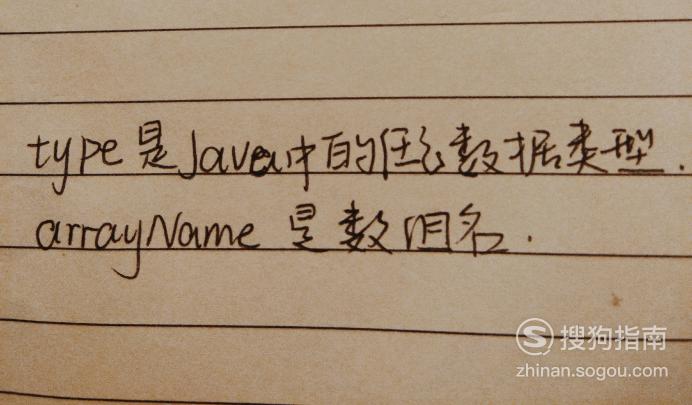 type是Java中的任意数据类型.
arrayName 是数组名.
搜狗指南
zhinan.sogou.com